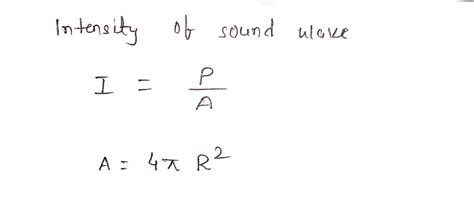 Intensity of sound wave
I = P / A
A = 4π R²